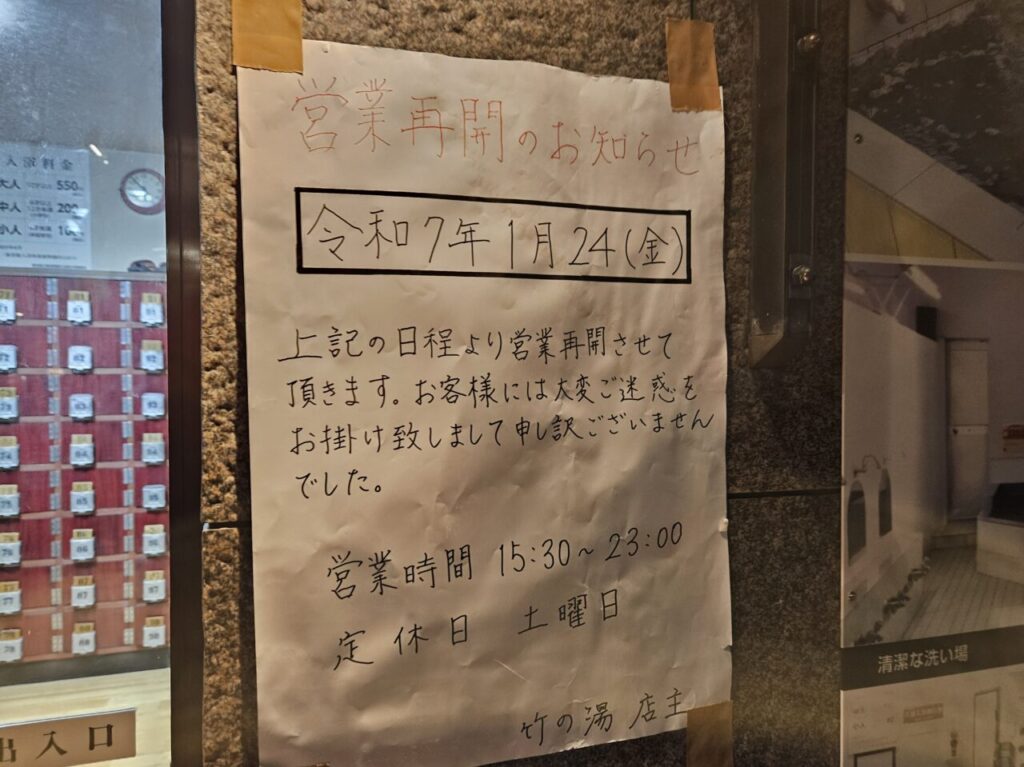 営業再開のお知らせ
令和7年1月24(金)
上記の日程より営業再開させて
頂きます。お客様には大変ご迷惑を
お掛け致しまして申し訳ございません
でした。
営業時間 15:30~23:00
定休日 土曜日
竹の湯 店主
入浴料金
大人 550
中人 200
小人
出入口
清潔な洗い場